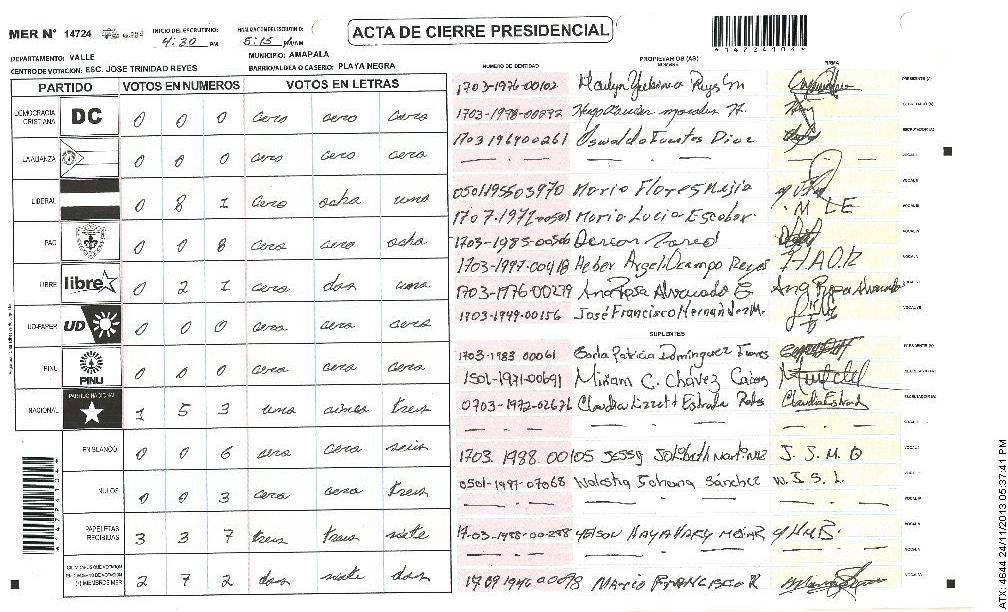 MER N° 14724
INICIO DEL ESCRUTINIO: 4:30 PM
FINALIZACION DEL ESCRUTINIO: 5:15
ACTA DE CIERRE PRESIDENCIAL
DEPARTAMENTO: VALLE
MUNICIPIO: AMAPALA
CENTRO DE VOTACION: ESC. JOSE TRINIDAD REYES
BARRIO/ALDEA O CASERIO: PLAYA NEGRA
PARTIDO VOTOS EN NUMEROS VOTOS EN LETRAS
DEMOCRACIA CRISTIANA DC 0 0 0 cero cero cero
LA ALIANZA 0 0 0 cero cero cero
LIBERAL 0 8 1 cero ocho uno
PAC 0 0 8 cero cero ocho
LIBRE libre 0 2 1 cero dos uno
UD-FAPER UD 0 0 0 cero cero cero
PINU PINU 0 0 0 cero cero cero
NACIONAL PARTIDO NACIONAL 1 5 3 uno cinco tres
EN BLANCO 0 0 6 cero cero seis
NULOS 0 0 3 cero cero tres
PAPELETAS RECIBIDAS 3 3 7 tres tres siete
(+) MIEMBROS MER 2 7 2 dos siete dos
NUMERO DE IDENTIDAD
PROPIETARIOS (AS)
NOMBRE
FIRMA
1703-1976-00102
PRESIDENTE (A)
1703-1978-00292
SECRETARIO (A)
1703 1964 00261 Oswaldo Fuentes Diaz
ESCRUTADOR (A)
VOCAL I
0501195503970 Mario Flores Mejia
1707-1972-00501 Maria Lucia Escobar M L E
1703-1985-00506
1703-1997-00418 Heber Argel Ocampo Reyes H A O R
1703-1976-00279 Ana Rosa Alvarado G. Ana Rosa Alvarado
1703-1949-00156 José Francisco Hernández M.
SUPLENTES
1703-1983 00061 Karla Patricia Domínguez Flores
PRESIDENTE (A)
1501-1971-00691 Miriam C. Chávez
SECRETARIO (A)
0703-1972-02626 Claudia Lizzett Estrada Claudia Estrada
ESCRUTADOR (A)
1703. 1988. 00105 Jessy Martinez J. S. M. O
VOCAL I
0501-1997-07068 Johana Sánchez W. J. S. L.
1703-1988-00298
1709 1946 00098 MARIO FRANCISCO R
*14724104*
ATX-4644 24/11/2013 05:37:41 PM